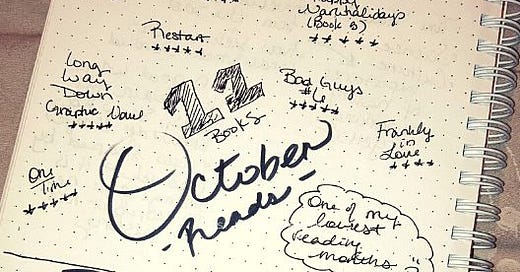 Narwhalidays
(Book 5)
Restart
Long
Way
Down
Graphic Novel
11
Books
Bad Guys
Frankly
in
Love
One
Time
October
-Reads-
One of my
lowest
reading
months